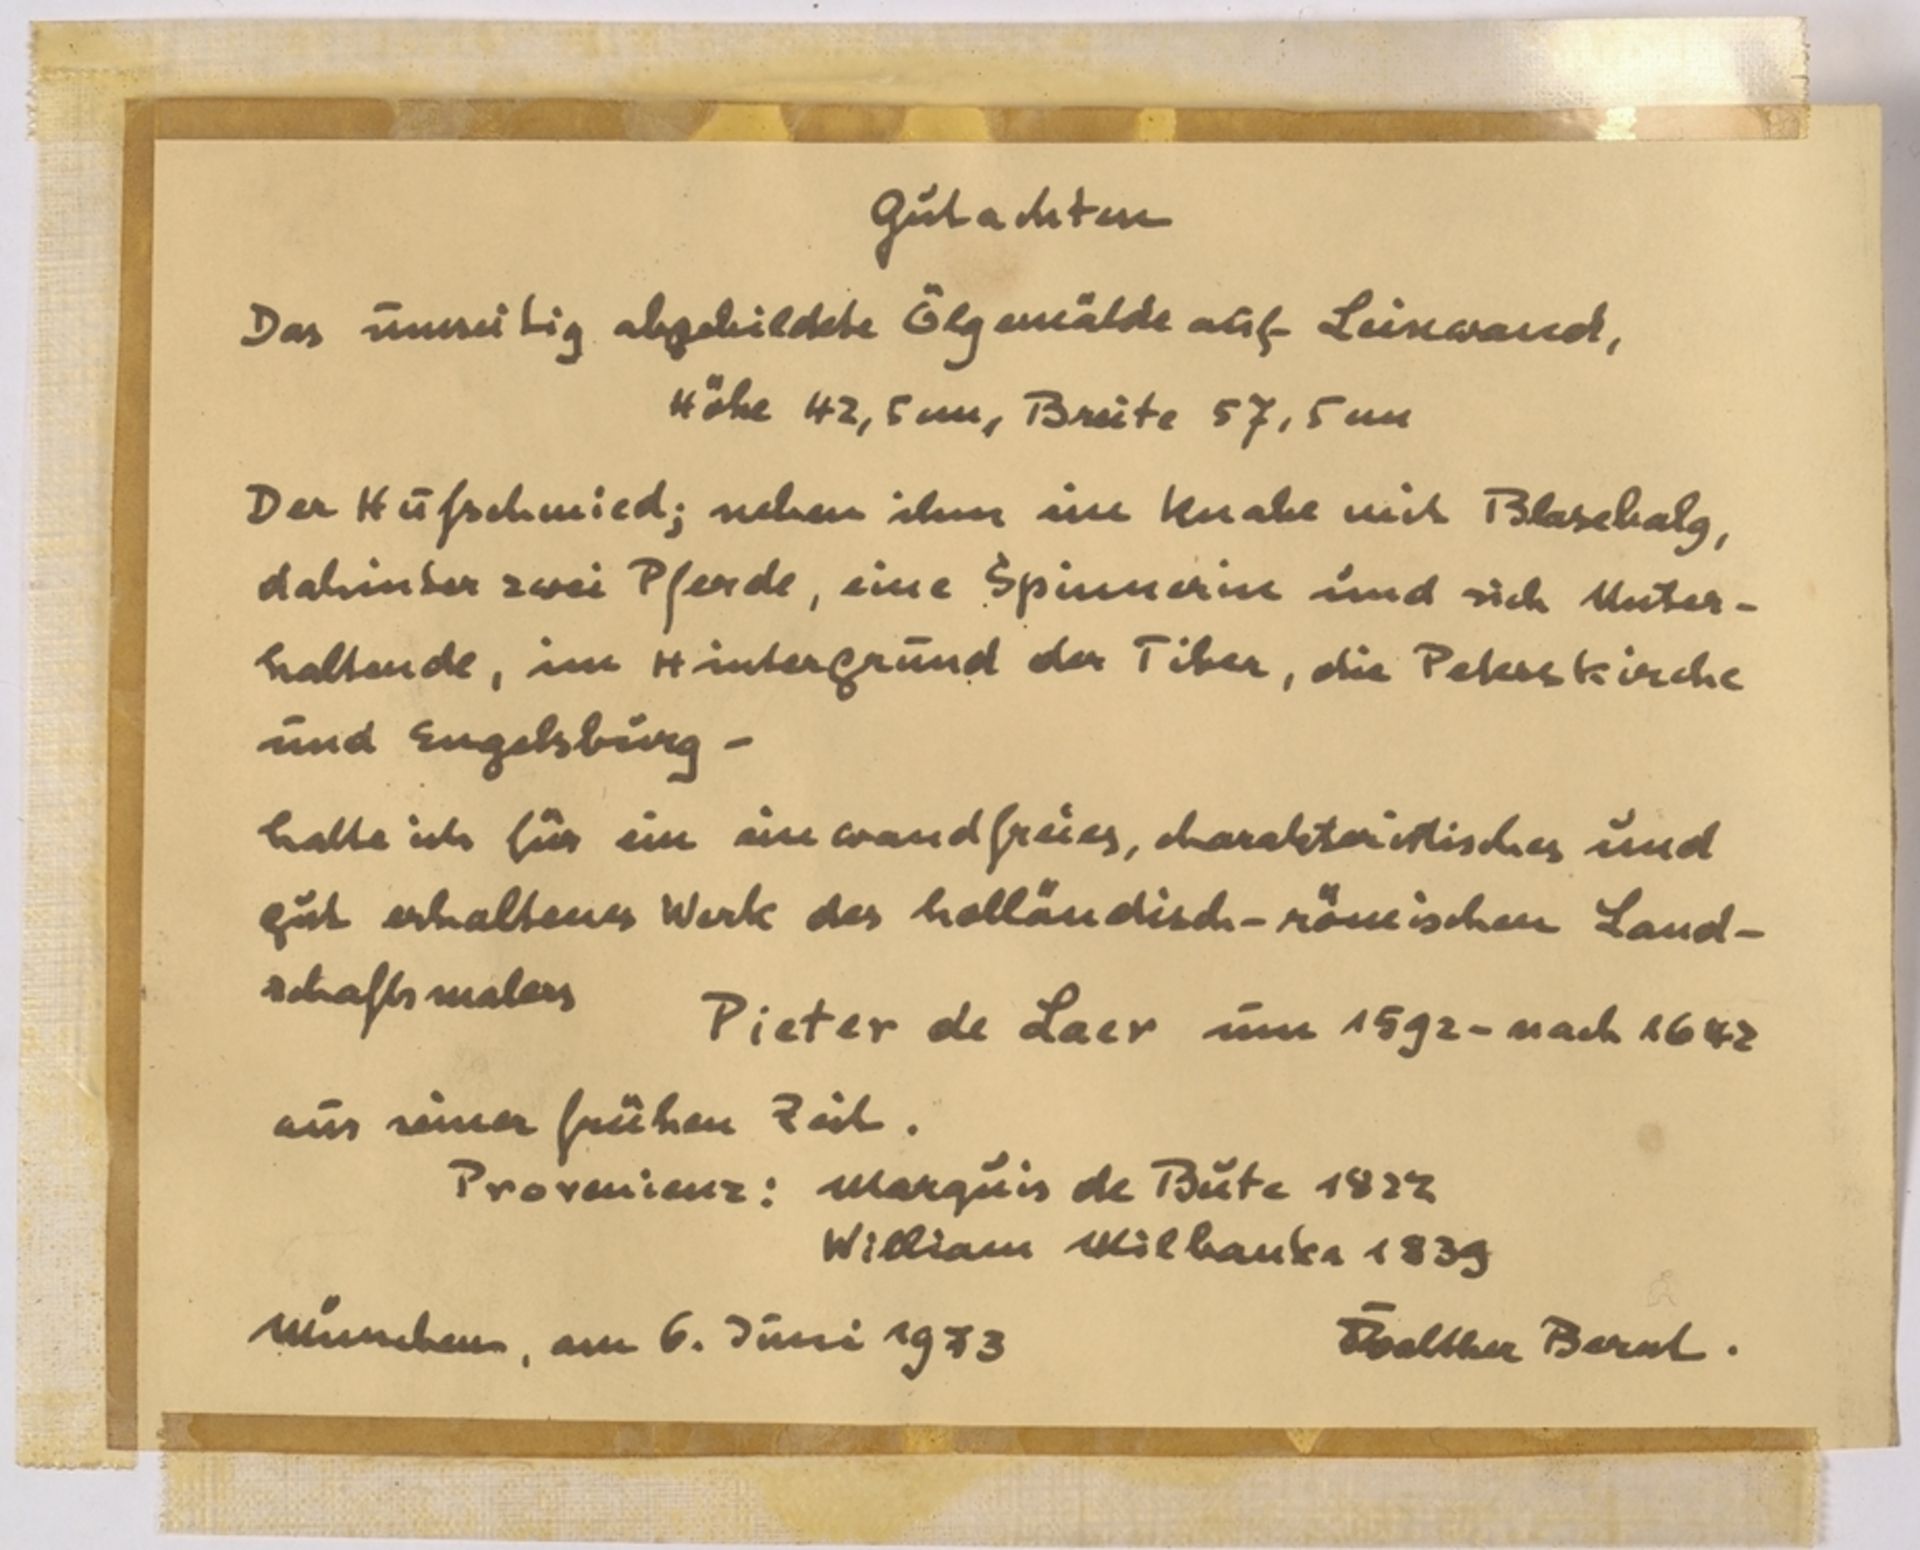 Gutachten
Das umseitig abgebildete Ölgemälde auf Leinwand,
Höhe 42,5 cm, Breite 57,5 cm
Der Hufschmied; neben ihm ein Knabe mit Blasebalg,
dahinter zwei Pferde, eine Spinnerin und sich Unter-
haltende, im Hintergrund der Tiber, die Peterskirche
und Engelsburg -
halte ich für ein einwandfreies, charakteristisches und
gut erhaltenes Werk des holländisch-römischen Land-
schaftsmalers
Pieter de Laer um 1592 - nach 1642
aus seiner frühen Zeit.
Provenienz: Marquis de Bute 1822
William Milbanks 1839
München, am 6. Juni 1973
Walther Bernt.